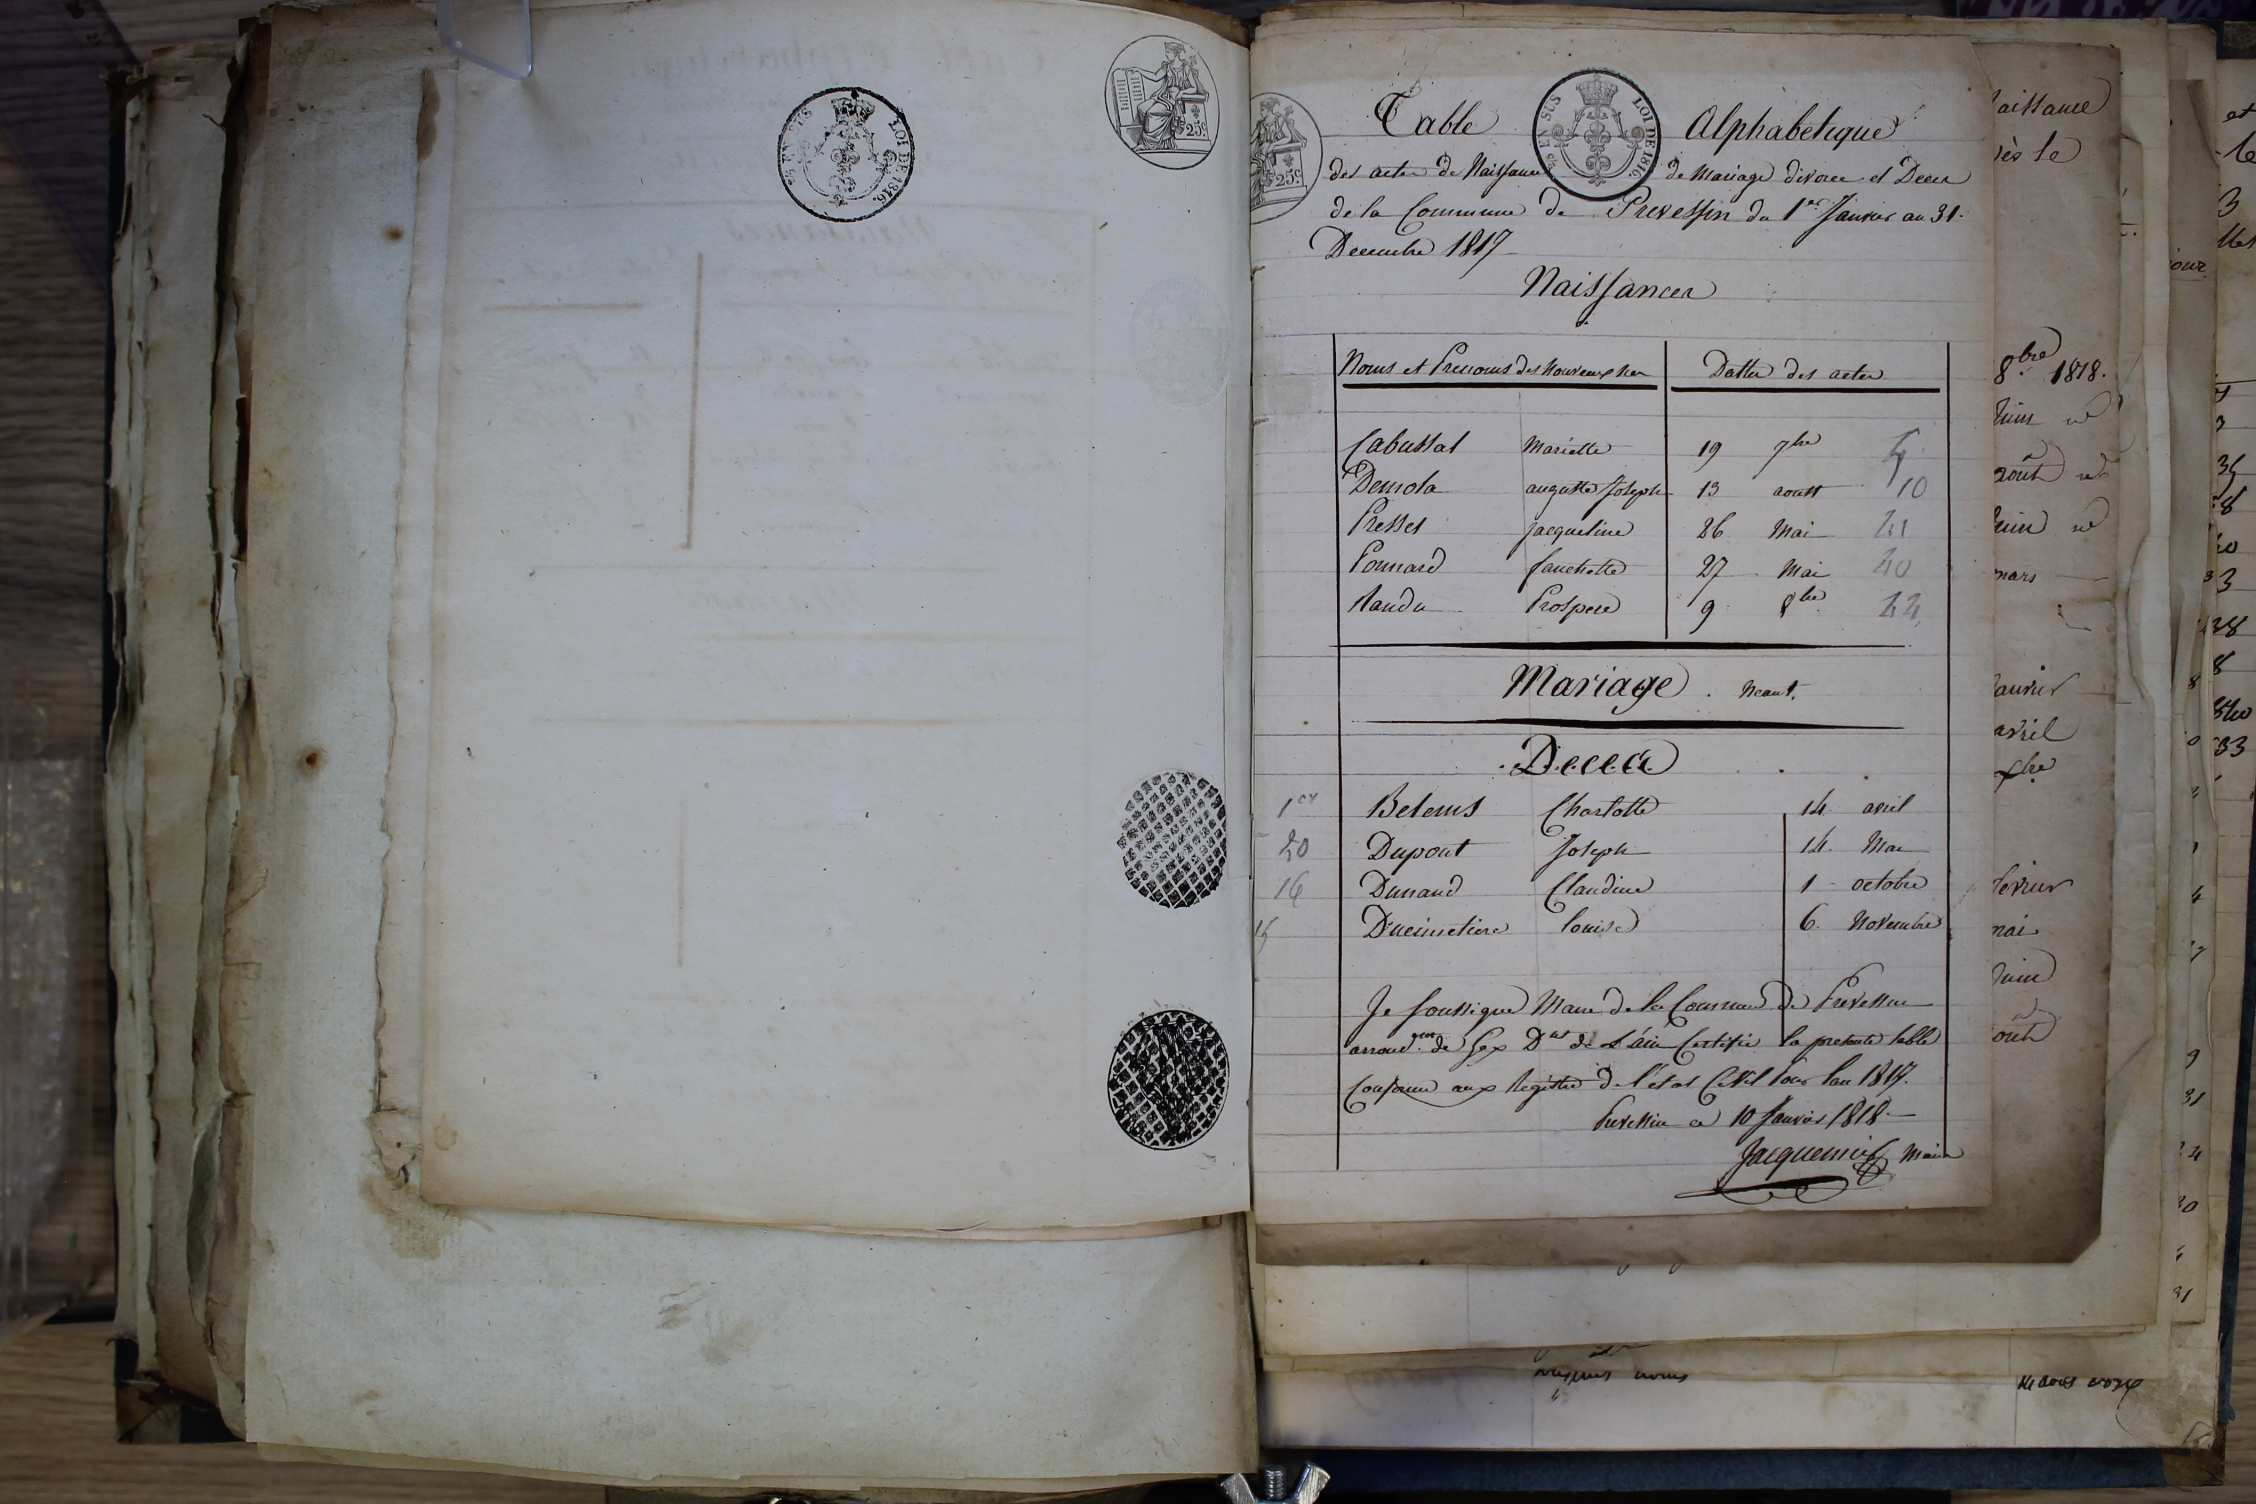 Table Alphabetique
des actes de Naissance de Mariage divorce et Deces
de la Commune de Prevessin du 1er Janvier au 31
Decembre 1817
Naissances
Noms et Prenoms des Nouveaux nes Dattes des actes
Cabussat Mariette 19 7bre
Demola auguste Joseph 13 aoust 10
Presset jacqueline 26 Mai 21
Ponnard fanchette 27 Mai 20
Randu Prospere 9 8bre
Mariage . Neant.
Deces
1er Belems Charlotte 14 avril
20 Dupont Joseph 14 Mai
16 Dunand Claudine 1 octobre
Ducimetiere louise 6 Novembre
Je soussigné Maire de la Commune de Prevessin
arrond. de Gex Dt de L'ain Certifie la presente table
Conforme aux Registre de l'etat Civil pour l'an 1817.
Prevessin ce 10 Janvier 1818
Jacquemier Maire
LOI DE 1816.
25c.
EN SUS LOI DE 1816.
25c.
aissance
8bre 1818.
août
mars
avril
mai